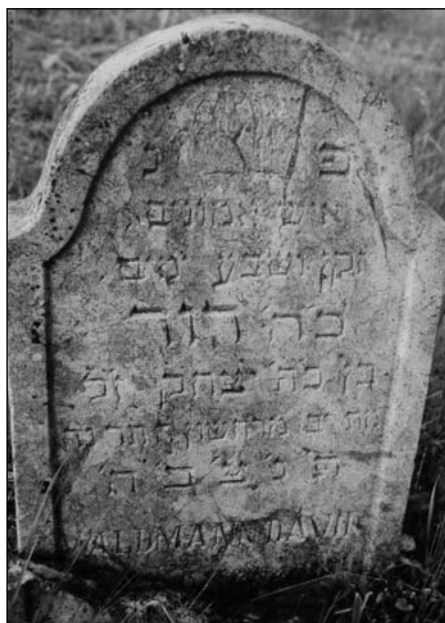 פ נ
איש אמונים
זקן ושבע ימים
כה' דוד
בן כה' יצחק ז"ל
מרחשון
ת' נ' צ' ב' ה'
WALDMANN DÁVID